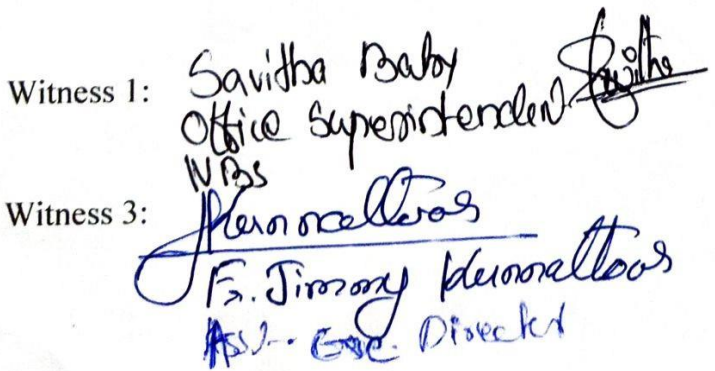 Witness 1: Savitha Baby
Office Superintendent Savitha
NBS
Witness 3: Kunnathoor
Fr. Jimmy Kunnathoor
Asst. Exe. Director